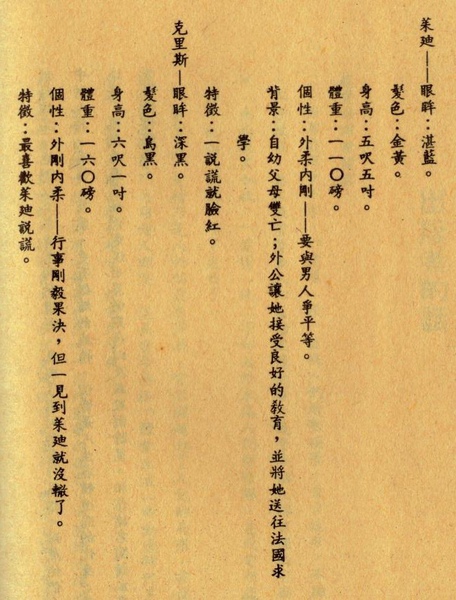 茱廸——眼眸：湛藍。
髮色：金黃。
身高：五呎五吋。
體重：一一〇磅。
個性：外柔內剛——要與男人爭平等。
背景：自幼父母雙亡；外公讓她接受良好的教育，並將她送往法國求
學。
特徵：一說謊就臉紅。
克里斯——眼眸：深黑。
髮色：烏黑。
身高：六呎一吋。
體重：一六〇磅。
個性：外剛內柔——行事剛毅果決，但一見到茱廸就沒轍了。
特徵：最喜歡茱廸說謊。